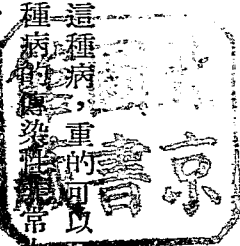 這種病,重的可以
種病的傳染性非常
京
書